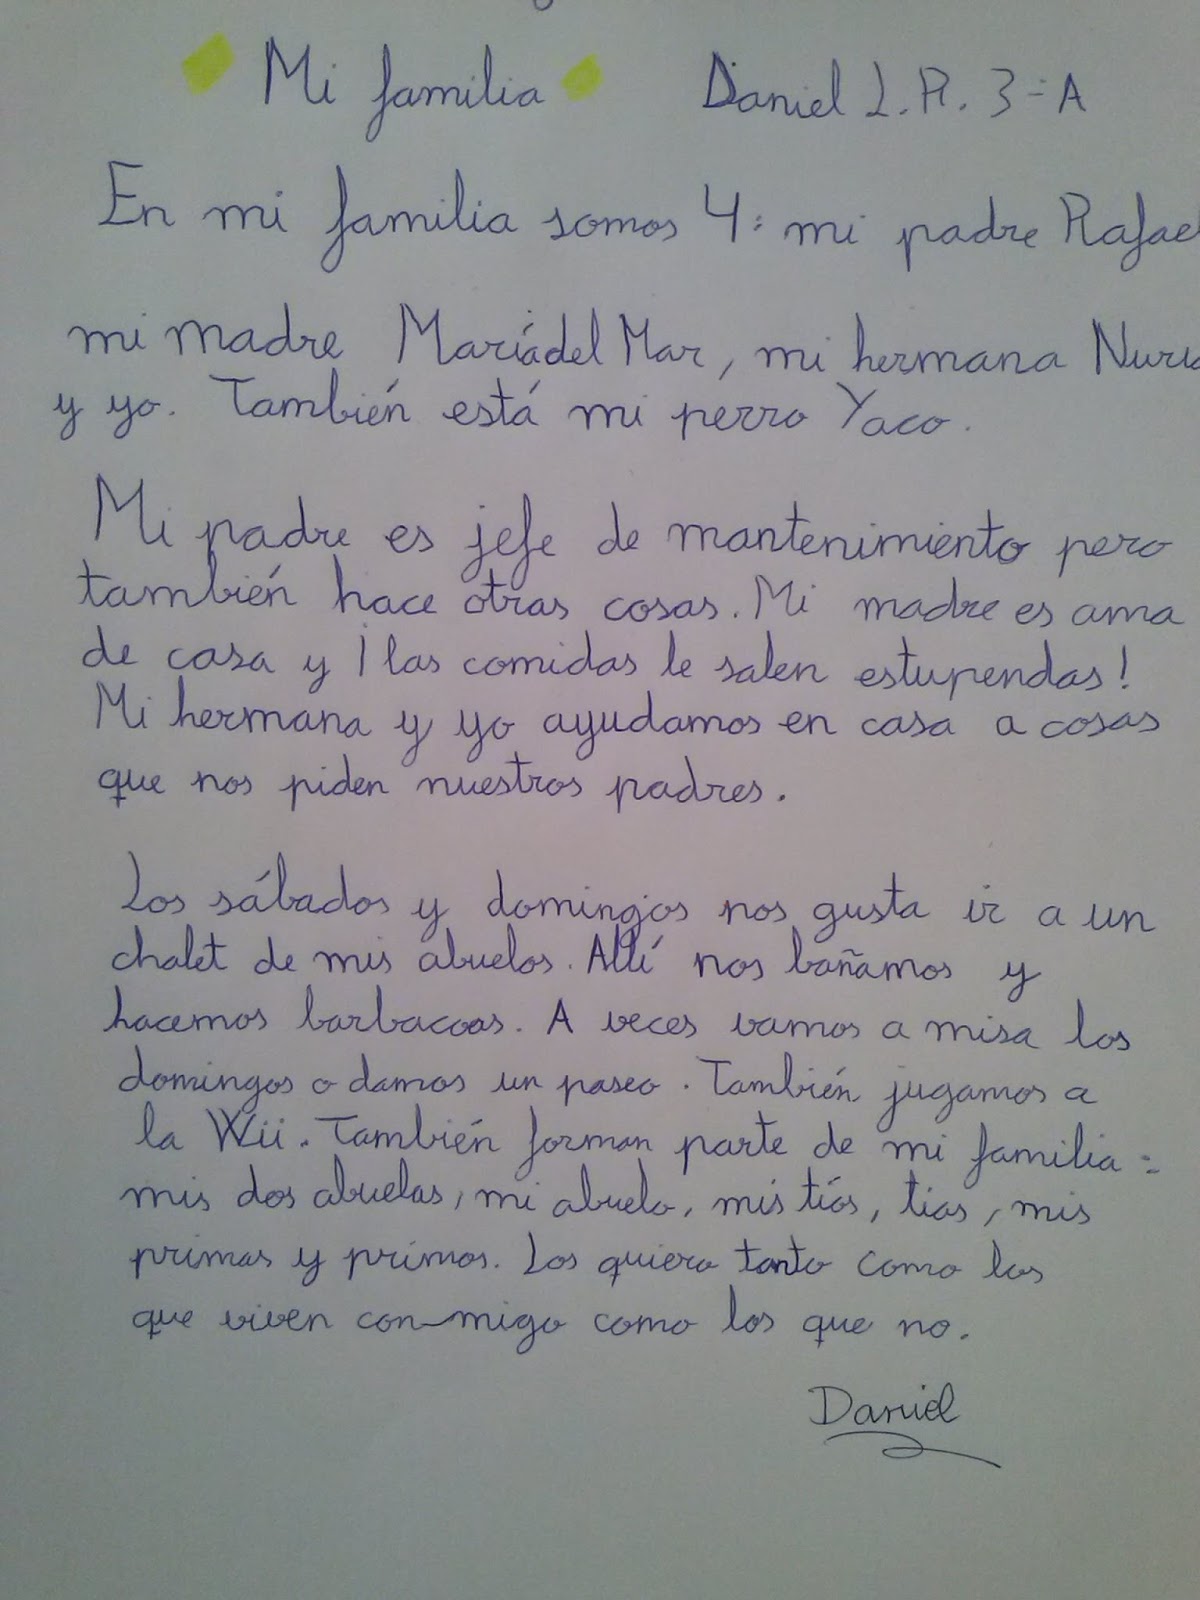 Mi familia Daniel L.R. 3=A
En mi familia somos 4: mi padre Rafael
mi madre Maríadel Mar, mi hermana Nuria
y yo. También está mi perro Yaco.
Mi padre es jefe de mantenimiento pero
también hace otras cosas. Mi madre es ama
de casa y ¡las comidas le salen estupendas!
Mi hermana y yo ayudamos en casa a cosas
que nos piden nuestros padres.
Los sábados y domingos nos gusta ir a un
chalet de mis abuelos. Allí nos bañamos y
hacemos barbacoas. A veces vamos a misa los
domingos o damos un paseo. También jugamos a
la Wii. También forman parte de mi familia:
mis dos abuelas, mi abuelo, mis tíos, tias, mis
primas y primos. Los quiero tanto como los
que viven con-migo como los que no.
Daniel